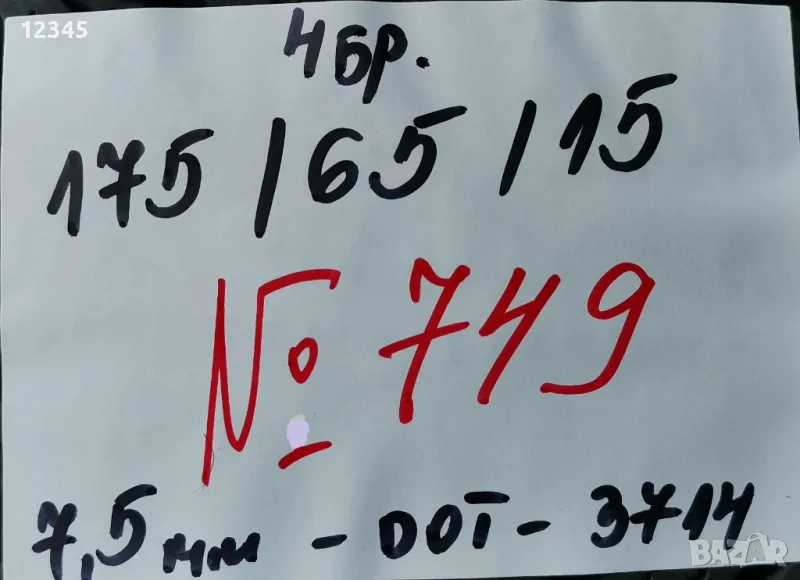 12345
4бр.
175/65/15
№ 749
7,5мм - DOT - 3714
BAZAR